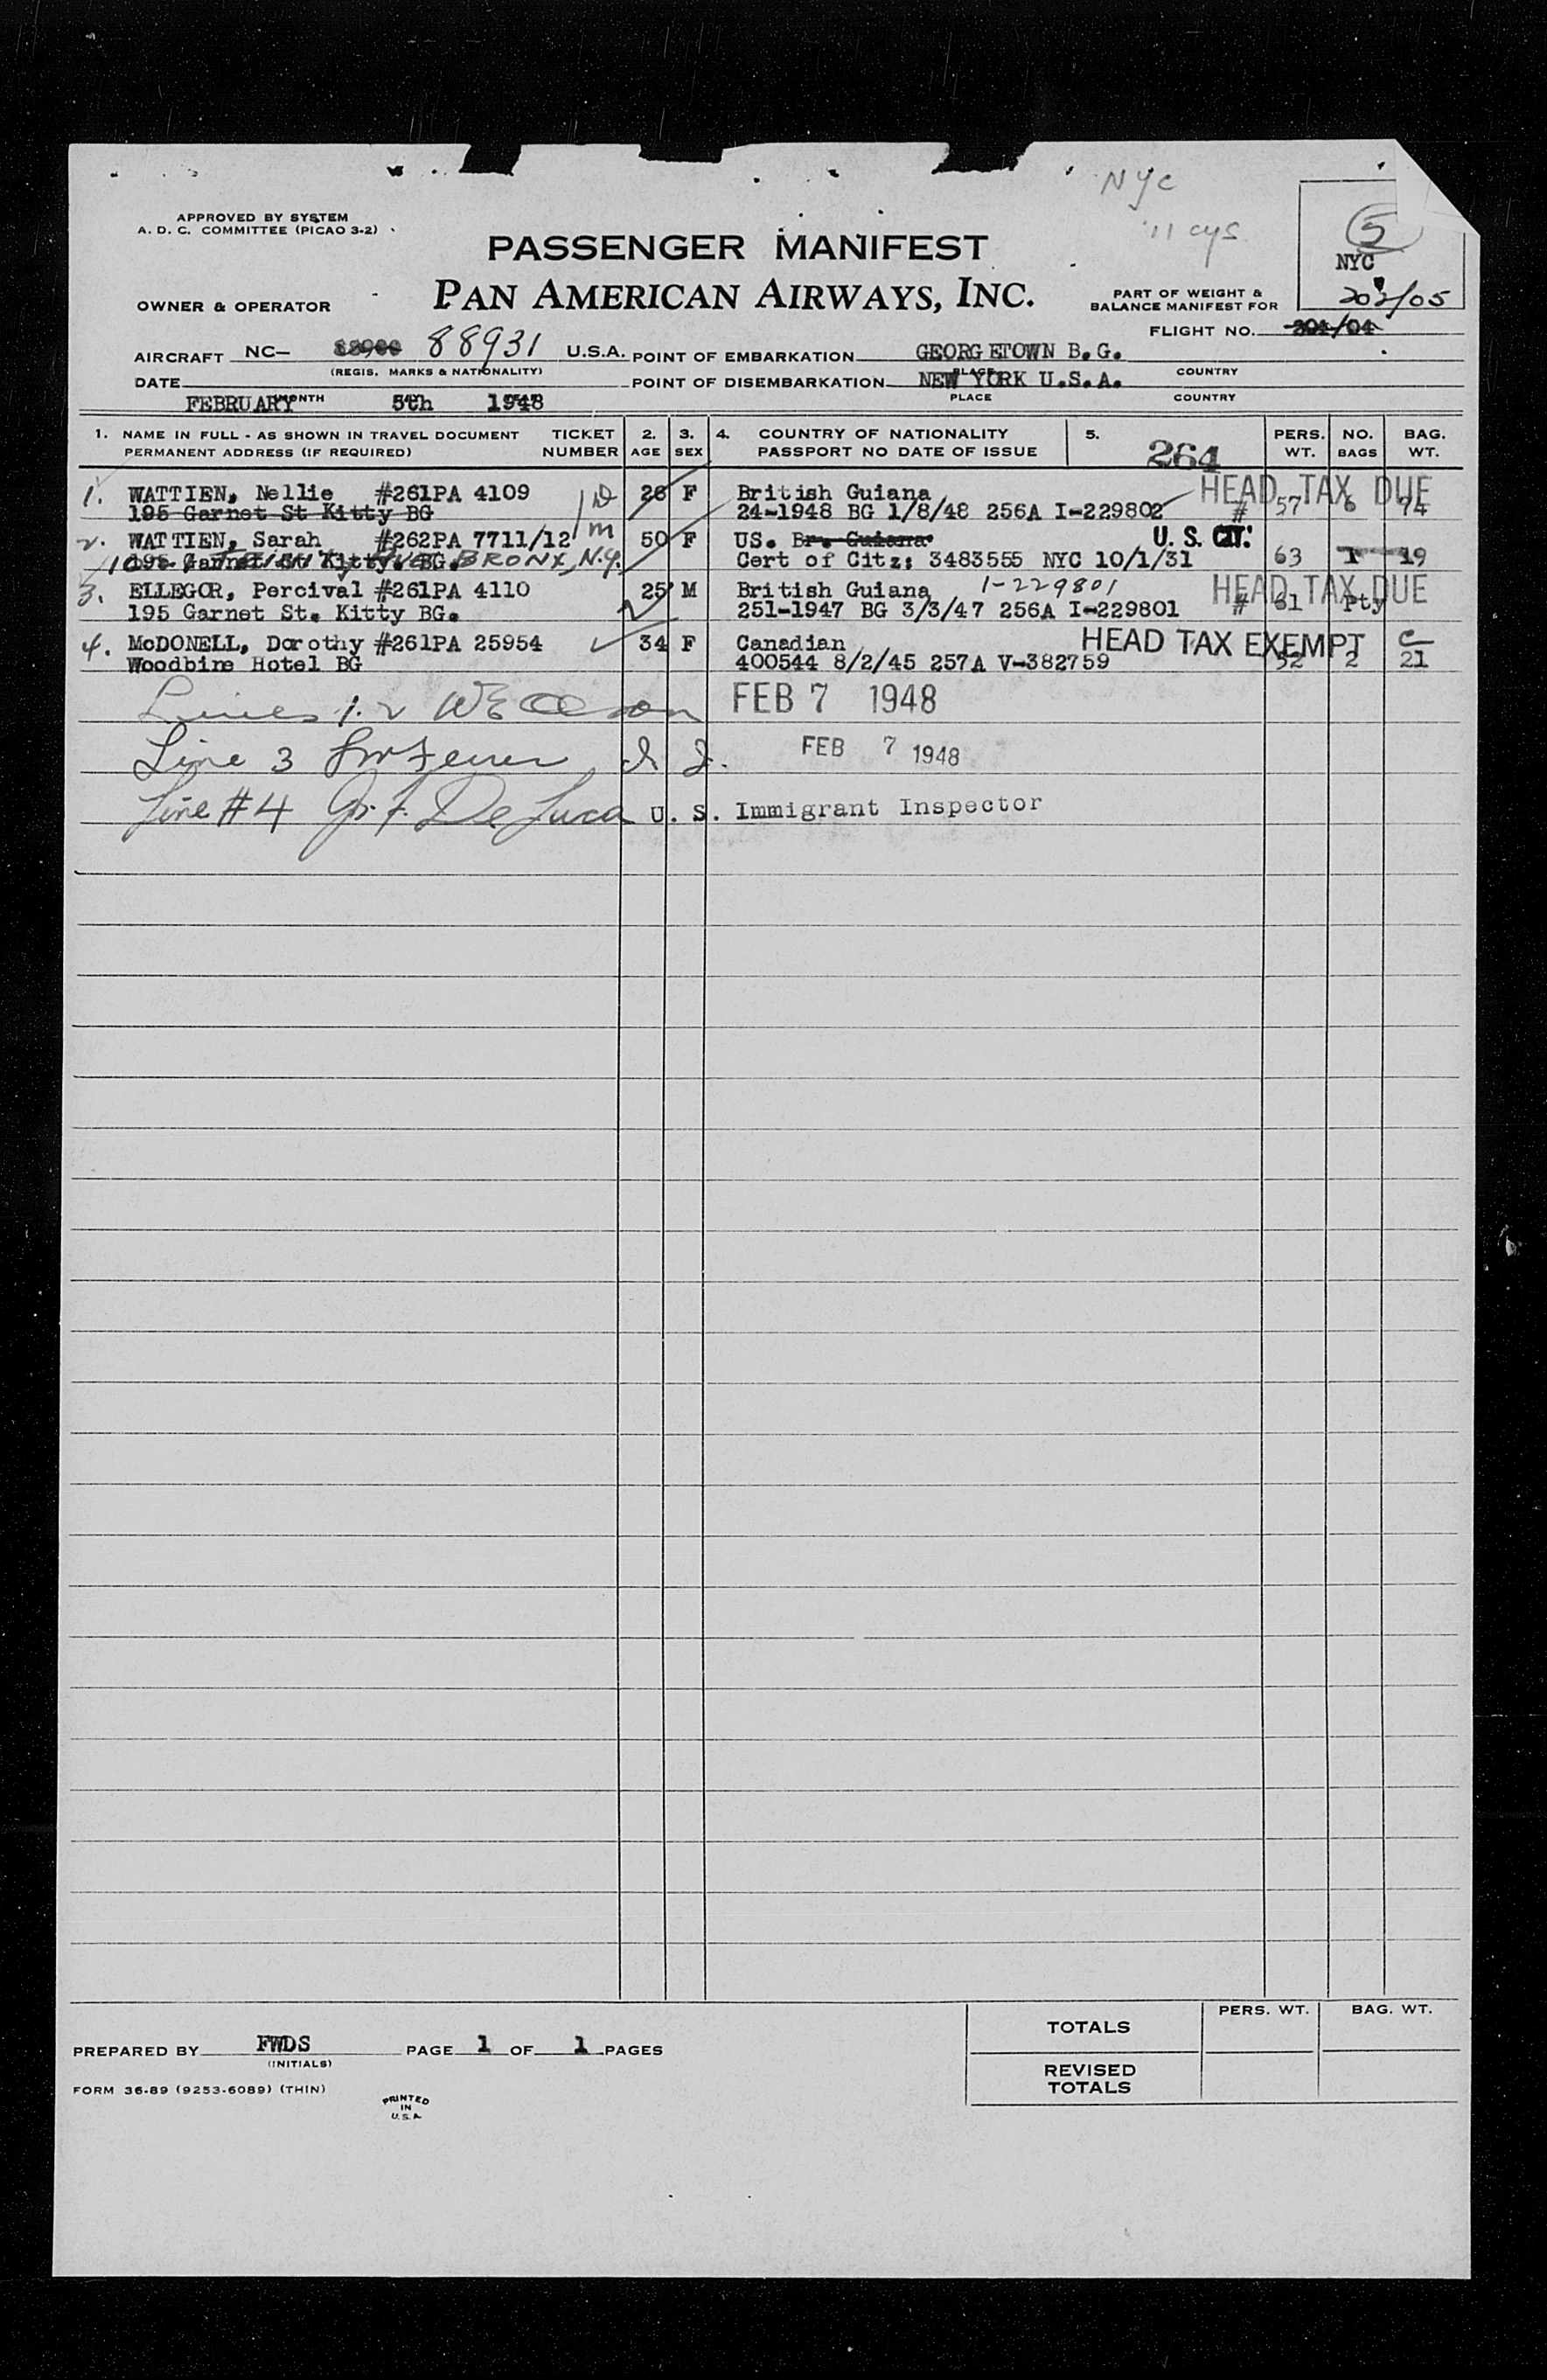 NYC
APPROVED BY SYSTEM
A. D. C. COMMITTEE (PICAO 3-2)
5
NYC
PASSENGER MANIFEST
PAN AMERICAN AIRWAYS, INC.
OWNER & OPERATOR
PART OF WEIGHT &
BALANCE MANIFEST FOR
202/05
FLIGHT NO. 201/04
AIRCRAFT NC— 88931 U.S.A. POINT OF EMBARKATION GEORGETOWN B.G.
(REGIS. MARKS & NATIONALITY) PLACE COUNTRY
DATE POINT OF DISEMBARKATION NEW YORK U.S.A.
FEBRUARY MONTH 5th 1948 PLACE COUNTRY
1. NAME IN FULL - AS SHOWN IN TRAVEL DOCUMENT TICKET 2. 3. 4. COUNTRY OF NATIONALITY 5. PERS. NO. BAG.
PERMANENT ADDRESS (IF REQUIRED) NUMBER AGE SEX PASSPORT NO DATE OF ISSUE 264 WT. BAGS WT.
1. WATTIEN, Nellie #261PA 4109 26 F British Guiana HEAD TAX DUE
195 Garnet St Kitty BG 24-1948 BG 1/8/48 256A I-229802 # 57 6 74
2. WATTIEN, Sarah #262PA 7711/12 M 50 F US. Br. Guiana U. S. CIT.
195 Garnet St Kitty. BG. BRONX, N.Y. Cert of Citz: 3483555 NYC 10/1/31 63 1 19
3. ELLEGOR, Percival #261PA 4110 25 M British Guiana 1-229801 HEAD TAX DUE
195 Garnet St. Kitty BG. 251-1947 BG 3/3/47 256A I-229801 # 61 Pty
4. McDONELL, Dorothy #261PA 25954 34 F Canadian HEAD TAX EXEMPT
Woodbine Hotel BG 400544 8/2/45 257A V-382759 52 2 21
Lines 1. 2 FEB 7 1948
Line 3 FEB 7 1948
Line #4 De Luca U. S. Immigrant Inspector
PERS. WT. BAG. WT.
TOTALS
PREPARED BY FWDS PAGE 1 OF 1 PAGES
(INITIALS)
REVISED
TOTALS
FORM 36-89 (9253-6089) (THIN)
PRINTED
IN
U.S.A.